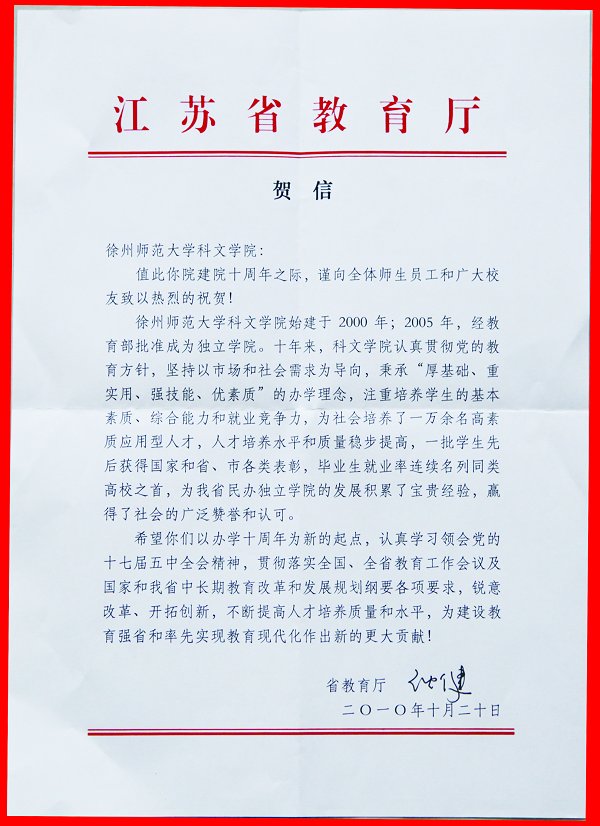 江苏省教育厅
贺信
徐州师范大学科文学院：
值此你院建院十周年之际，谨向全体师生员工和广大校
友致以热烈的祝贺！
徐州师范大学科文学院始建于 2000 年；2005 年，经教
育部批准成为独立学院。十年来，科文学院认真贯彻党的教
育方针，坚持以市场和社会需求为导向，秉承“厚基础、重
实用、强技能、优素质”的办学理念，注重培养学生的基本
素质、综合能力和就业竞争力，为社会培养了一万余名高素
质应用型人才，人才培养水平和质量稳步提高，一批学生先
后获得国家和省、市各类表彰，毕业生就业率连续名列同类
高校之首，为我省民办独立学院的发展积累了宝贵经验，赢
得了社会的广泛赞誉和认可。
希望你们以办学十周年为新的起点，认真学习领会党的
十七届五中全会精神，贯彻落实全国、全省教育工作会议及
国家和我省中长期教育改革和发展规划纲要各项要求，锐意
改革、开拓创新，不断提高人才培养质量和水平，为建设教
育强省和率先实现教育现代化作出新的更大贡献！
省教育厅
二〇一〇年十月二十日